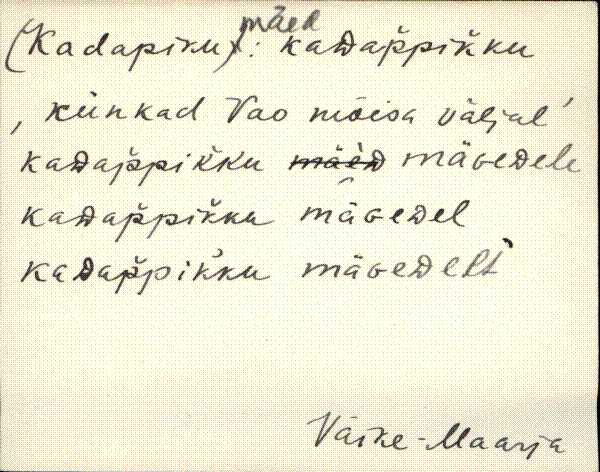 (Kadapiku) mäed : kaᴅap̌pik̆ku
, künkad Vao mõisa väljal'
kaᴅap̆pik̆ku mäèᴅ mäɢeᴅele
kaᴅap̆pik̆ku mäɢeᴅel
kaᴅap̆pik̆ku mäɢeᴅelt̀
Väike-Maarja